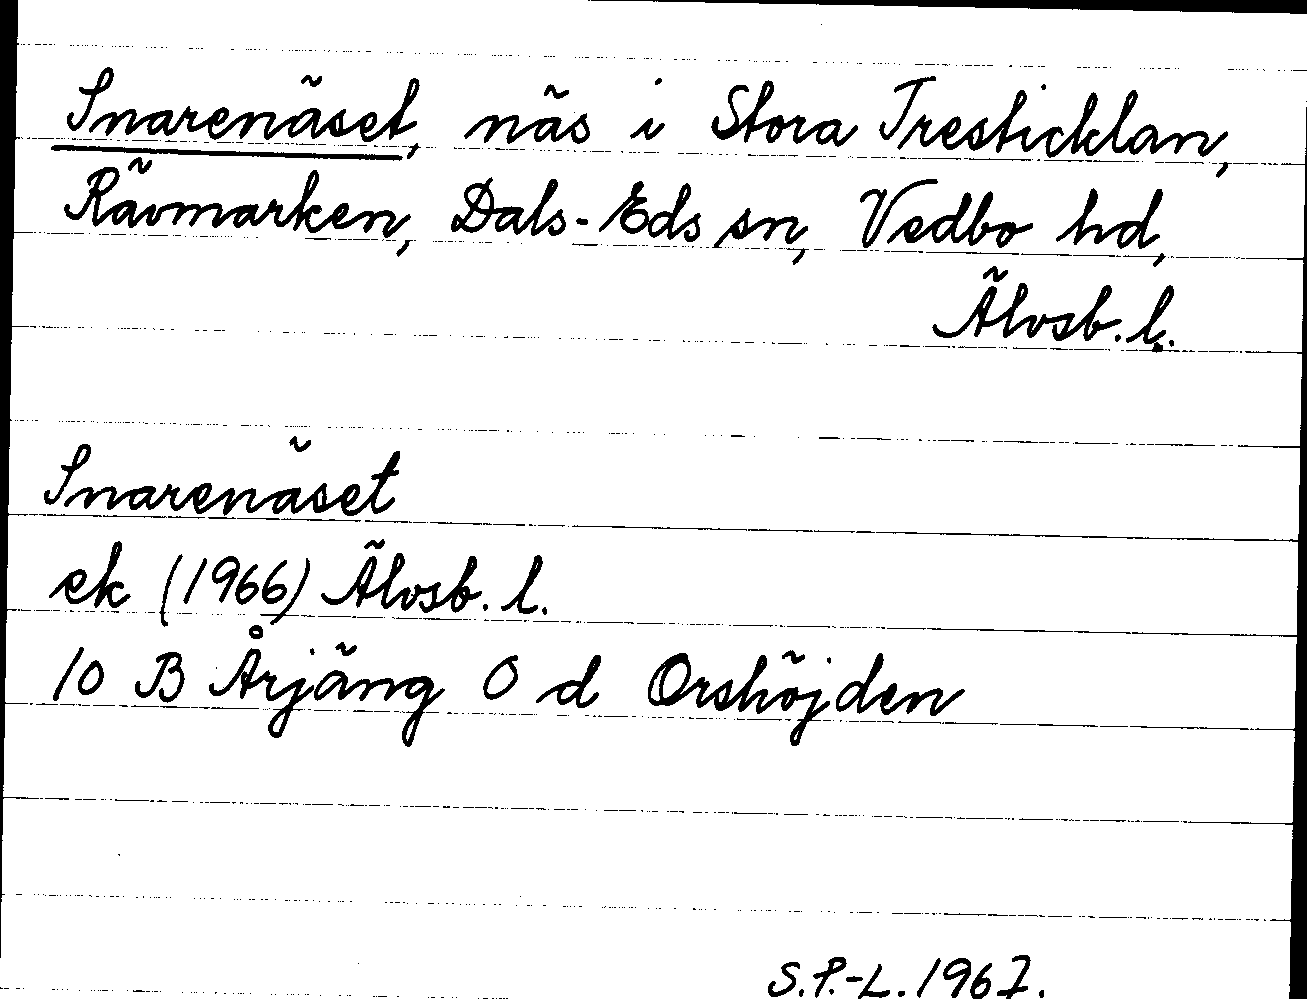 Snarenäset, näs i Stora Tresticklan,
Rävmarken, Dals-Eds sn, Vedbo hd,
Älvsb. l.
Snarenäset
ek (1966) Älvsb. l.
10 B Årjäng 0 d Orshöjden
S.P.-L. 1967.